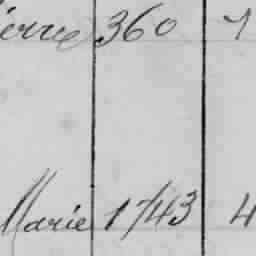 ierre 360 1
Marie 1743 4